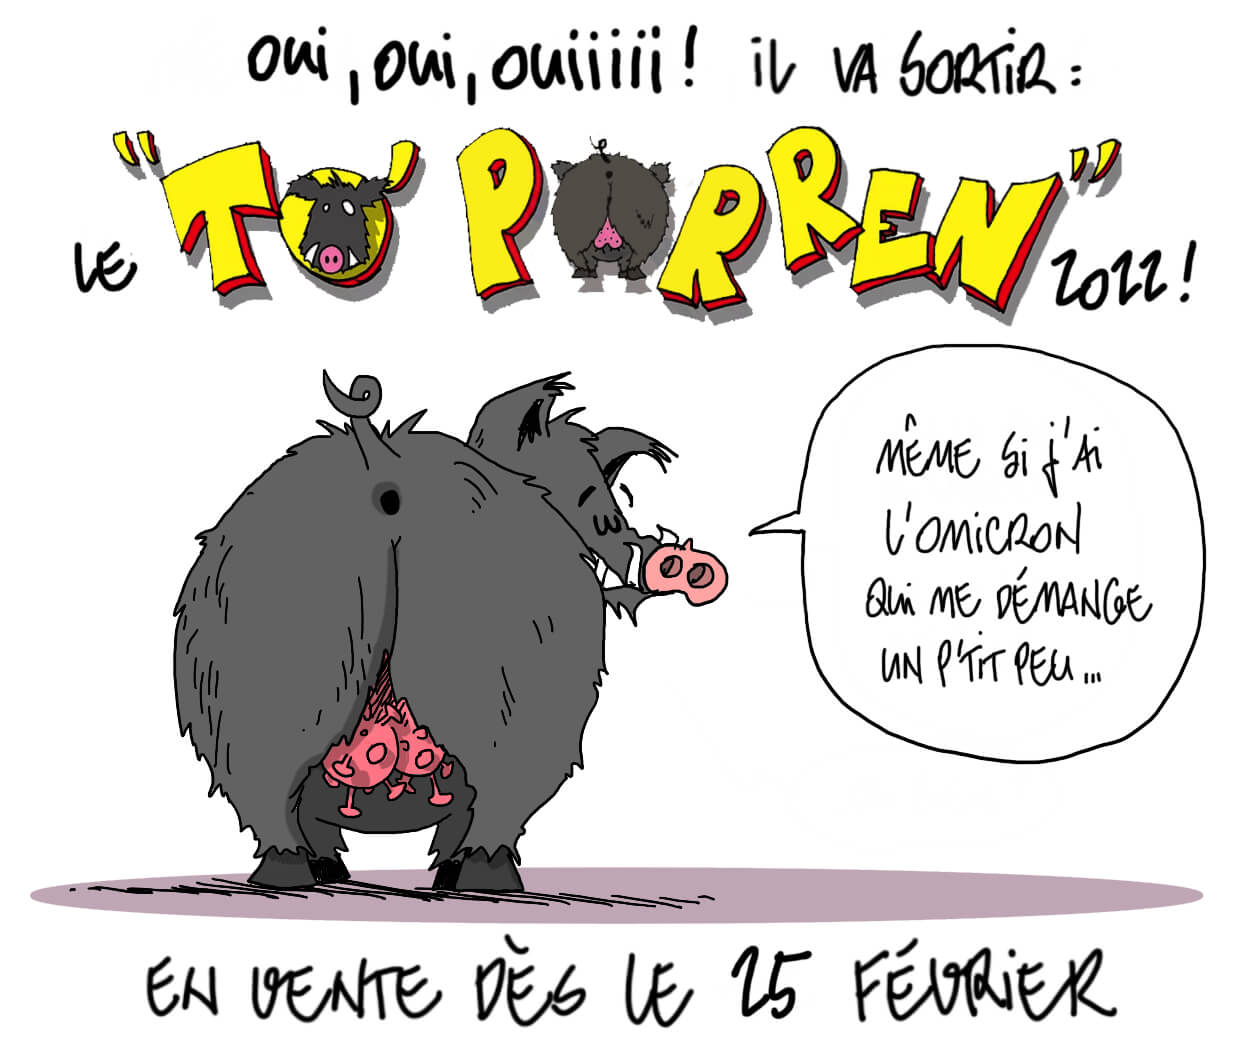 OUI, OUI, OUIIIIII! IL VA SORTIR :
LE "TO' PORREN" 2022!
MÊME SI J'AI
L'OMICRON
QUI ME DÉMANGE
UN P'TIT PEU...
EN VENTE DÈS LE 25 FÉVRIER